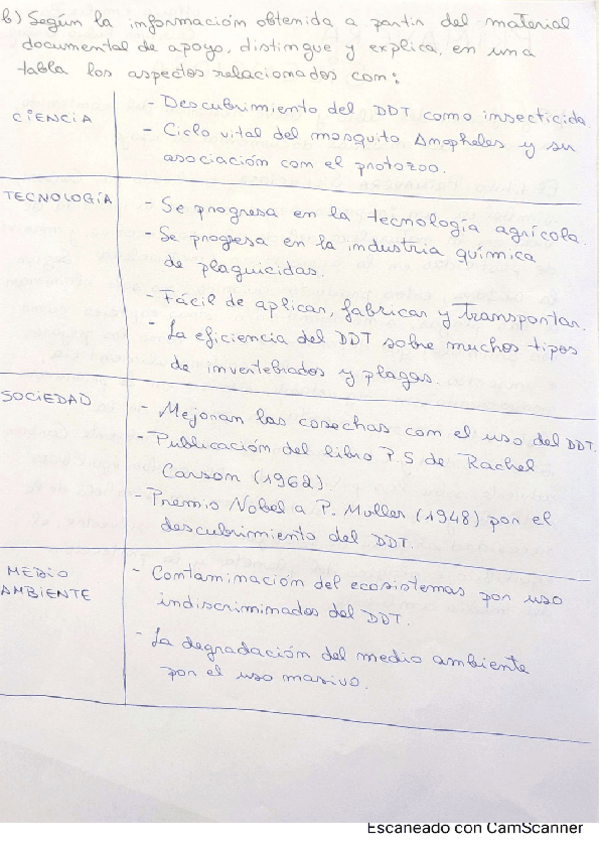 b) Según la información obtenida a partir del material
documental de apoyo, distingue y explica, en una
tabla los aspectos relacionados con:
CIENCIA
- Descubrimiento del DDT como insecticida.
- Ciclo vital del mosquito Anopheles y su
asociación con el protozoo.
TECNOLOGÍA
- Se progresa en la tecnología agrícola.
- Se progresa en la industria química
de plaguicidas.
- Fácil de aplicar, fabricar y transportar.
- La eficiencia del DDT sobre muchos tipos
de invertebrados y plagas.
SOCIEDAD
- Mejoran las cosechas con el uso del DDT.
- Publicación del libro P S de Rachel
Carson (1962)
- Premio Nobel a P. Muller (1948) por el
descubrimiento del DDT.
MEDIO
AMBIENTE
- Contaminación del ecosistemas por uso
indiscriminados del DDT.
- La degradación del medio ambiente
por el uso masivo.
Escaneado con CamScanner